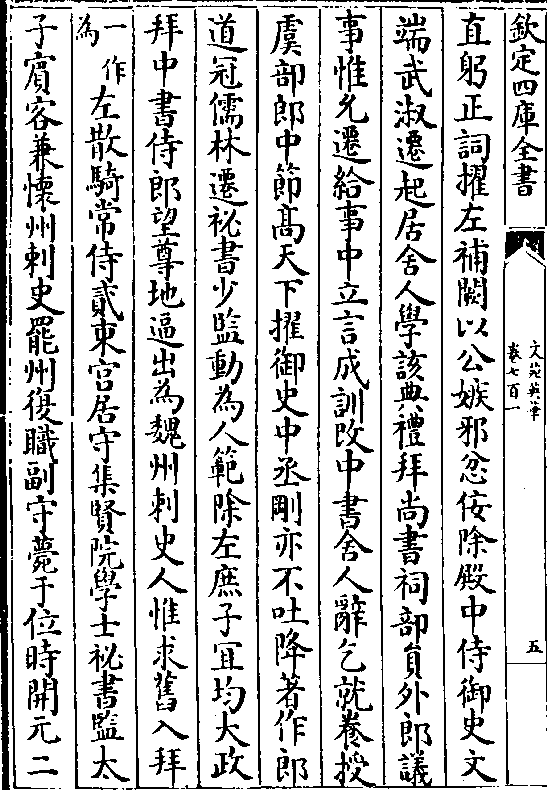 欽定四庫全書
文苑英華
卷七百一
五
直躬正詞擢左補闕以公嫉邪忿佞除殿中侍御史文
端武淑遷起居舍人學該典禮拜尚書祠部員外郎議
事惟允遷給事中立言成訓改中書舍人辭乞就養授
虞部郎中節髙天下擢御史中丞剛亦不吐降著作郎
道冠儒林遷祕書少監動為人範除左庶子冝均大政
拜中書侍郎望尊地逼出為魏州刺史人惟求舊入拜
一作為左散騎常侍貳東宫居守集賢院學士祕書監太
子賓客兼懷州刺史罷州復職副守薨于位時開元二